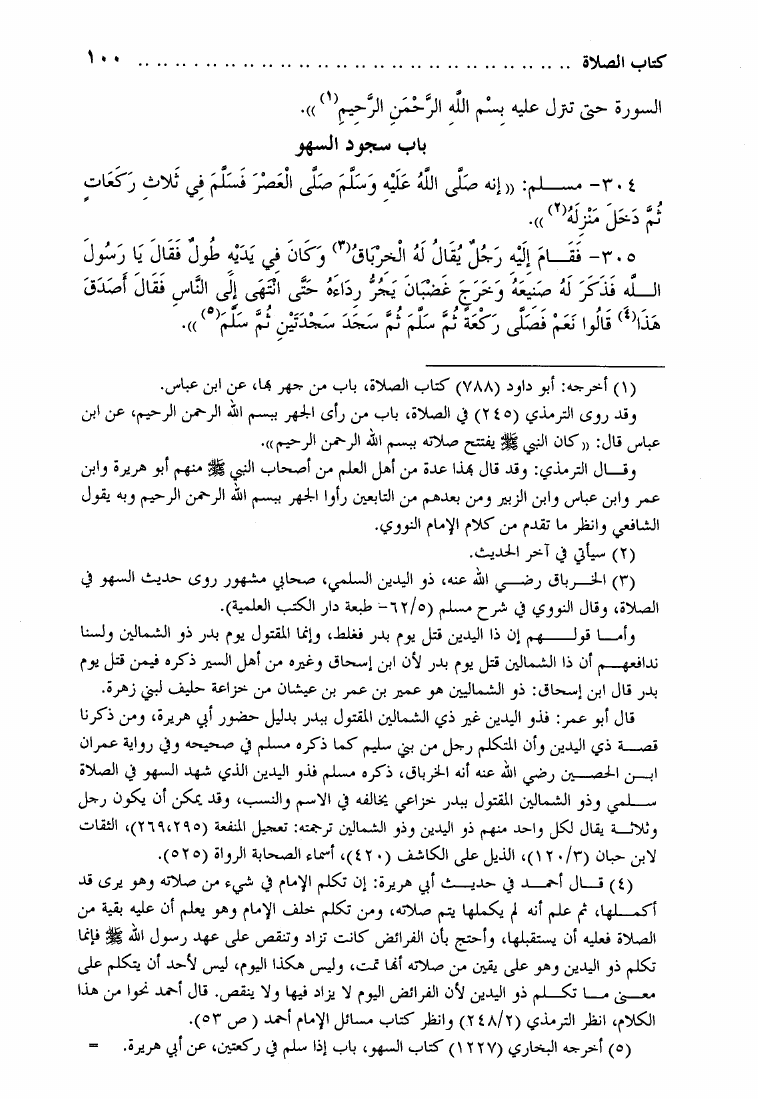 كتاب الصلاة .............................................. ١٠٠
السورة حتى تنزل عليه بِسْمِ اللَّهِ الرَّحْمَنِ الرَّحِيمِ(١)».
باب سجود السهو
٣٠٤- مسـلم: «إنه صَلَّى اللَّهُ عَلَيْهِ وَسَلَّمَ صَلَّى الْعَصْرَ فَسَلَّمَ فِي ثَلاثِ رَكَعَاتٍ
ثُمَّ دَخَلَ مَنْزِلَهُ(٢)».
٣٠٥- فَقَـامَ إِلَيْهِ رَجُلٌ يُقَالُ لَهُ الْخِرْبَاقُ(٣) وَكَانَ فِي يَدَيْهِ طُولٌ فَقَالَ يَا رَسُولَ
اللَّـهِ فَذَكَرَ لَهُ صَنِيعَهُ وَخَرَجَ غَضْبَانَ يَجُرُّ رِدَاءَهُ حَتَّى انْتَهَى إِلَى النَّاسِ فَقَالَ أَصَدَقَ
هَذَا(٤) قَالُوا نَعَمْ فَصَلَّى رَكْعَةً ثُمَّ سَلَّمَ ثُمَّ سَجَدَ سَجْدَتَيْنِ ثُمَّ سَلَّمَ(٥)».
(١) أخرجه: أبو داود (٧٨٨) كتاب الصلاة، باب من جهر بها، عن ابن عباس.
وقد روى الترمذي (٢٤٥) في الصلاة، باب من رأى الجهر ببسم الله الرحمن الرحيم، عن ابن
عباس قال: «كان النبي ﷺ يفتتح صلاته ببسم الله الرحمن الرحيم».
وقـال الترمذي: وقد قال بهذا عدة من أهل العلم من أصحاب النبي ﷺ منهم أبو هريرة وابن
عمر وابن عباس وابن الزبير ومن بعدهم من التابعين رأوا الجهر ببسم الله الرحمن الرحيم وبه يقول
الشافعي وانظر ما تقدم من كلام الإمام النووي.
(٢) سيأتي في آخر الحديث.
(٣) الخـرباق رضـي الله عنه، ذو اليدين السلمي، صحابي مشهور روى حديث السهو في
الصلاة، وقال النووي في شرح مسلم (٦٢/٥- طبعة دار الكتب العلمية).
وأمـا قولـهم إن ذا اليدين قتل يوم بدر فغلط، وإنما المقتول يوم بدر ذو الشمالين ولسنا
ندافعهـم أن ذا الشمالين قتل يوم بدر لأن ابن إسحاق وغيره من أهل السير ذكره فيمن قتل يوم
بدر قال ابن إسحاق: ذو الشماليين هو عمير بن عمر بن عيشان من خزاعة حليف لبني زهرة.
قال أبو عمر: فذو اليدين غير ذي الشمالين المقتول ببدر بدليل حضور أبي هريرة، ومن ذكرنا
قصـة ذي اليدين وأن المتكلم رجل من بني سليم كما ذكره مسلم في صحيحه وفي رواية عمران
ابـن الحصـين رضي الله عنه أنه الخرباق، ذكره مسلم فذو اليدين الذي شهد السهو في الصلاة
سـلمي وذو الشمالين المقتول ببدر خزاعي يخالفه في الاسم والنسب، وقد يمكن أن يكون رجل
وثلاثـة يقال لكل واحد منهم ذو اليدين وذو الشمالين ترجمته: تعجيل المنفعة (٢٦٩،٢٩٥)، الثقات
لابن حبان (١٢٠/٣)، الذيل على الكاشف (٤٢٠)، أسماء الصحابة الرواة (٥٢٥).
(٤) قـال أحمـد في حديـث أبي هريرة: إن تكلم الإمام في شيء من صلاته وهو يرى قد
أكمـلها، ثم علم أنه لم يكملها يتم صلاته، ومن تكلم خلف الإمام وهو يعلم أن عليه بقية من
الصلاة فعليه أن يستقبلها، وأحتج بأن الفرائض كانت تزاد وتنقص على عهد رسول الله ﷺ فإنما
تكلم ذو اليدين وهو على يقين من صلاته أنها تمت، وليس هكذا اليوم، ليس لأحد أن يتكلم على
معـنى مـا تكـلم ذو اليدين لأن الفرائض اليوم لا يزاد فيها ولا ينقص. قال أحمد نحوا من هذا
الكلام، انظر الترمذي (٢٤٨/٢) وانظر كتاب مسائل الإمام أحمد ( ص ٥٣).
(٥) أخرجه البخاري (١٢٢٧) كتاب السهو، باب إذا سلم في ركعتين، عن أبي هريرة. =